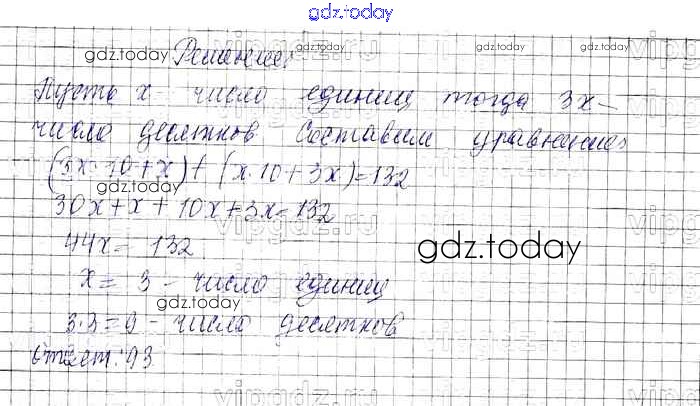 gdz.today
Решение:
Пусть x - число единиц тогда 3x -
число десятков Составим уравнение:
(3x·10+x)+(x·10+3x)=132
30x+x+10x+3x=132
44x=132
x=3 - число единиц
3·3=9 - число десятков
Ответ: 93
gdz.today
gdz.today
gdz.today
gdz.today
gdz.today
gdz.today
gdz.today
gdz.today
vipgdz.ru